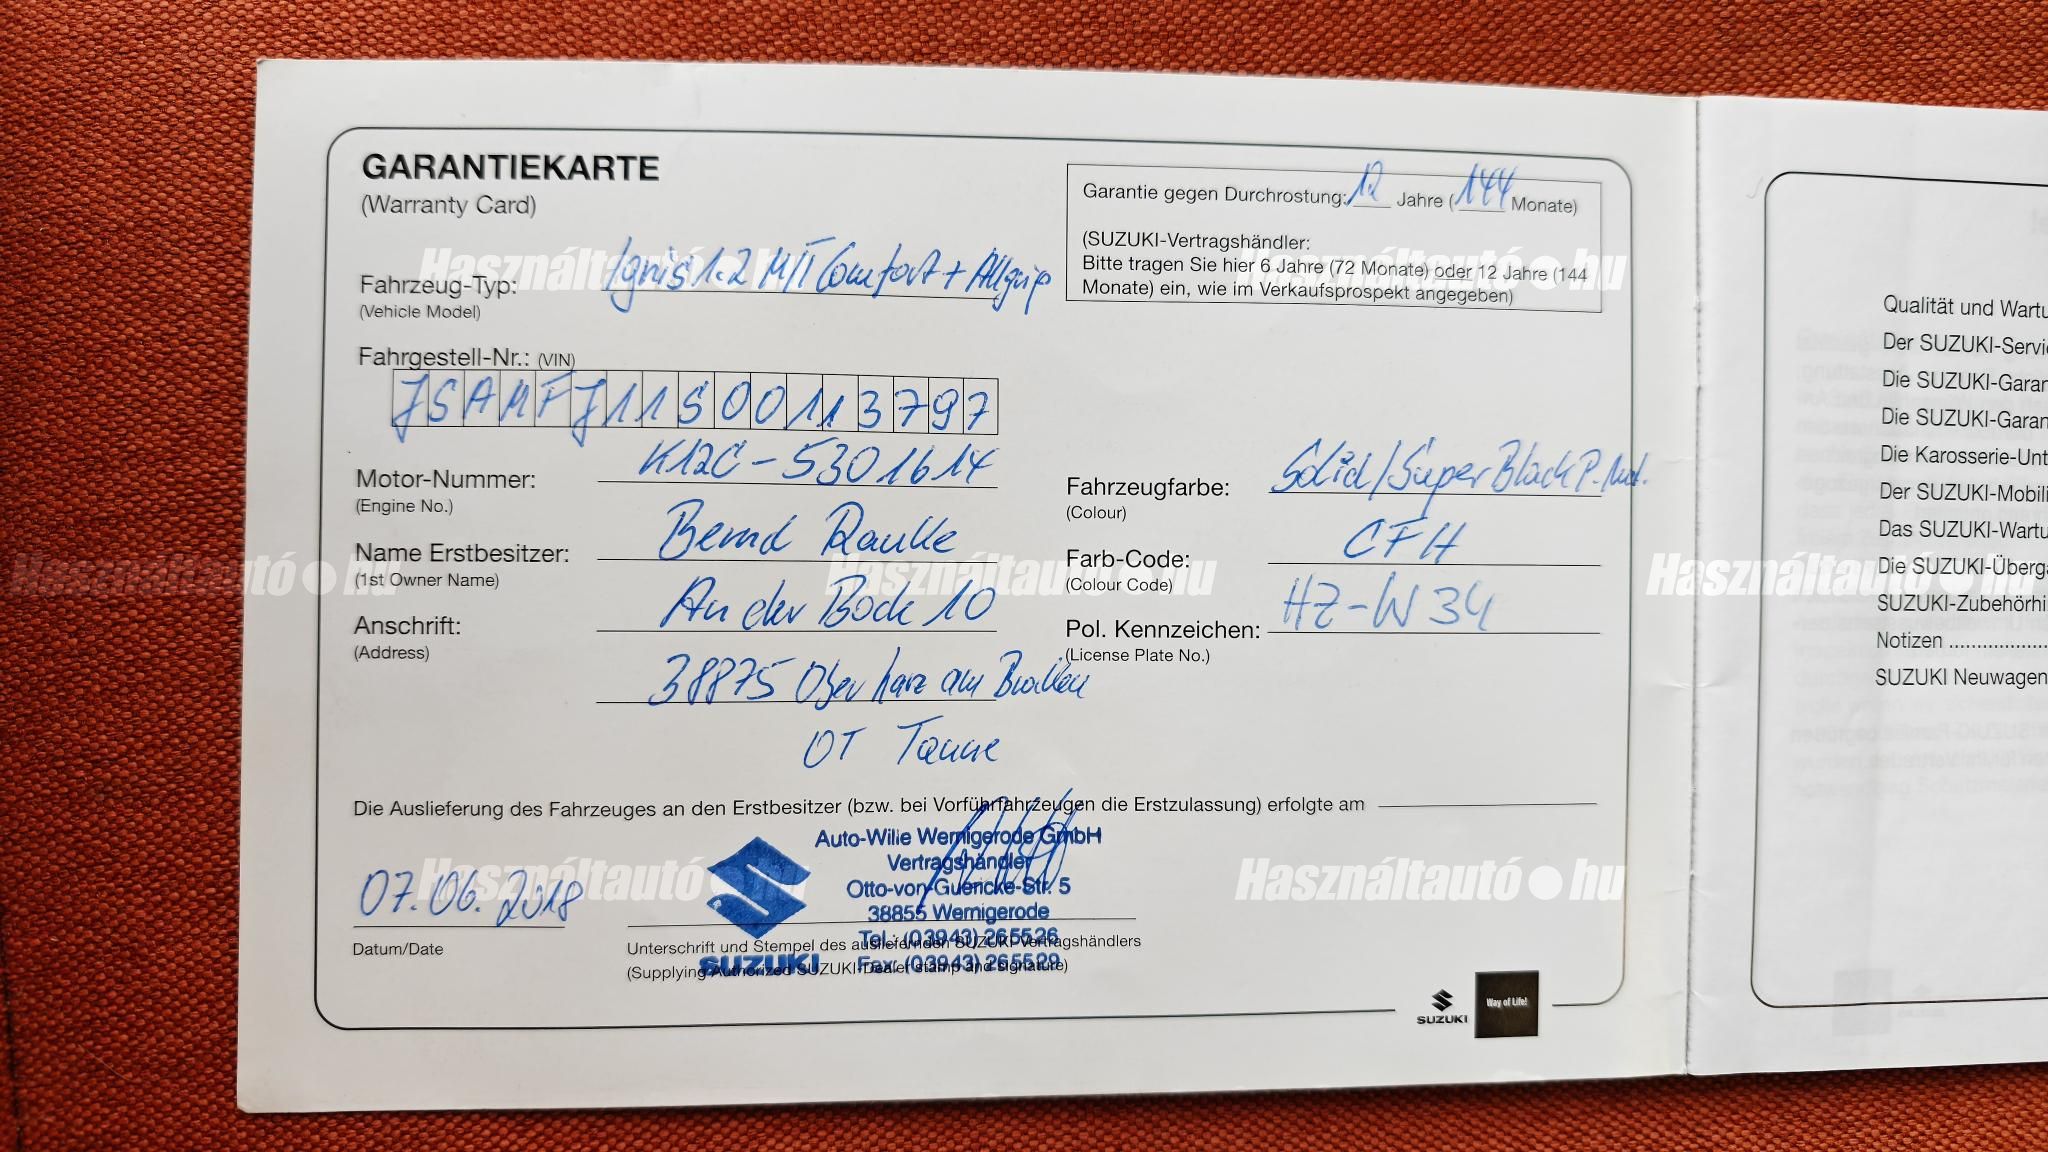 GARANTIEKARTE
(Warranty Card)
Garantie gegen Durchrostung: 12 Jahre (144 Monate)
(SUZUKI-Vertragshändler:
Bitte tragen Sie hier 6 Jahre (72 Monate) oder 12 Jahre (144
Monate) ein, wie im Verkaufsprospekt angegeben)
Fahrzeug-Typ: Ignis 1.2 M/T Comfort + Allgrip
(Vehicle Model)
Fahrgestell-Nr.: (VIN)
JSAMFJ11S00113797
Motor-Nummer: K12C-5301614
(Engine No.)
Name Erstbesitzer: Bernd
(1st Owner Name)
Anschrift: An der Bode 10
(Address)
38875 Oberharz am Brocken
OT Tanne
Fahrzeugfarbe: Solid/Super Black P.
(Colour)
Farb-Code: CFH
(Colour Code)
Pol. Kennzeichen: HZ-W 34
(License Plate No.)
Die Auslieferung des Fahrzeuges an den Erstbesitzer (bzw. bei Vorführfahrzeugen die Erstzulassung) erfolgte am
07.06.2018
Datum/Date
Auto-Wilie Wernigerode GmbH
Vertragshändler
Otto-von-Guericke-Str. 5
38855 Wernigerode
Tel.: (03943) 265526
Fax: (03943) 265529
SUZUKI
Unterschrift und Stempel des ausliefernden SUZUKI-Vertragshändlers
(Supplying Authorized SUZUKI-Dealer stamp and signature)
SUZUKI
Way of Life!
Qualität und Wartu
Der SUZUKI-Servic
Die SUZUKI-Garan
Die SUZUKI-Garan
Die Karosserie-Unt
Der SUZUKI-Mobili
Das SUZUKI-Wartu
Die SUZUKI-Überga
SUZUKI-Zubehörhi
Notizen
SUZUKI Neuwagen
Használtautó.hu
Használtautó.hu
Használtautó.hu
Használtautó.hu
Használtautó.hu
Használtautó.hu
Használtautó.hu